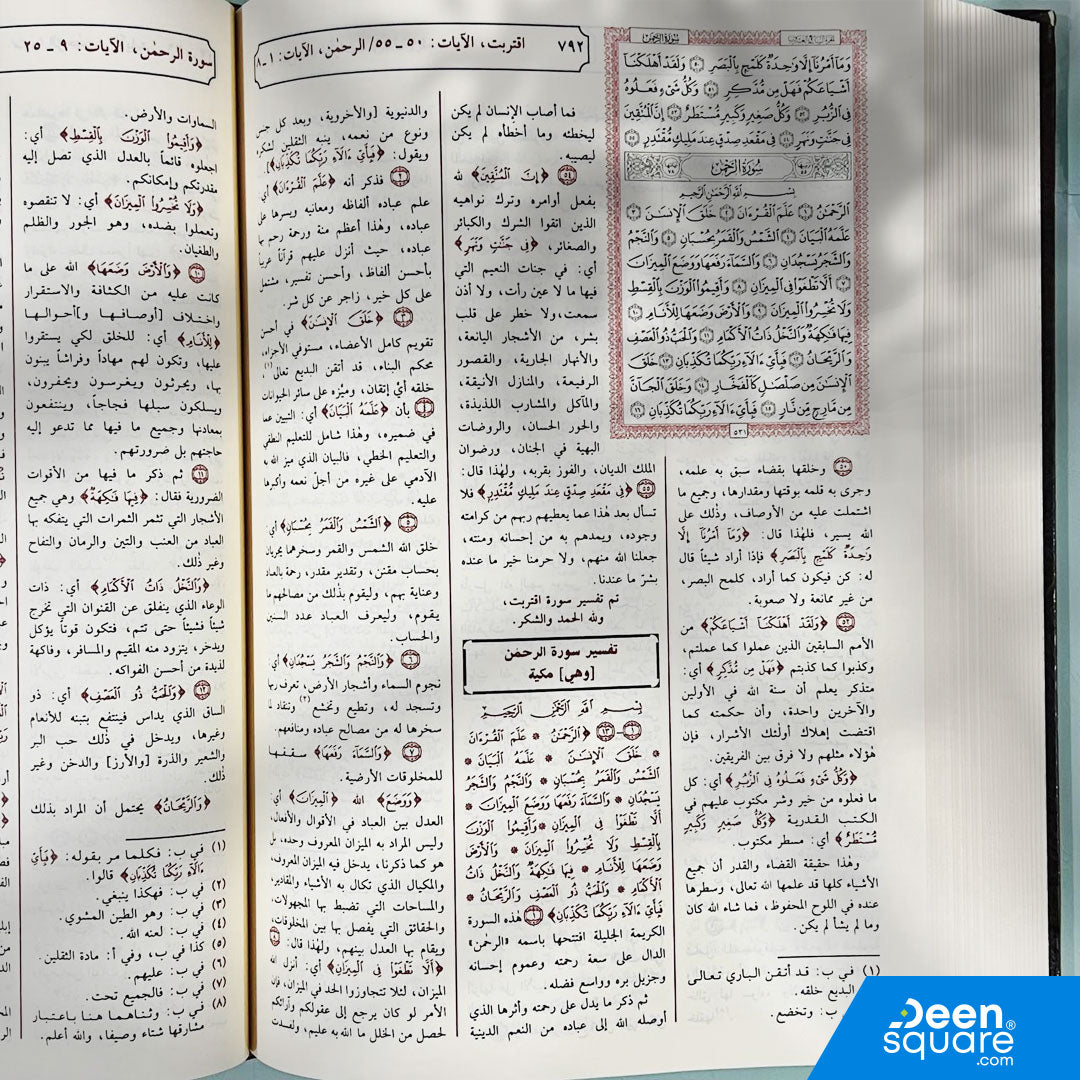 اقتربت، الآيات: ٥٠ ـ ٥٥/ الرحمٰن، الآيات: ١ـ٨
٧٩٢
سورة الرحمٰن، الآيات: ٩ ـ ٢٥
سُورَةُ الرَّحْمٰن
وَمَآ أَمْرُنَآ إِلَّا وَٰحِدَةٌ كَلَمْحٍۭ بِٱلْبَصَرِ ٥٠ وَلَقَدْ أَهْلَكْنَآ
أَشْيَاعَكُمْ فَهَلْ مِن مُّدَّكِرٍ ٥١ وَكُلُّ شَىْءٍ فَعَلُوهُ
فِى ٱلزُّبُرِ ٥٢ وَكُلُّ صَغِيرٍ وَكَبِيرٍ مُّسْتَطَرٌ ٥٣ إِنَّ ٱلْمُتَّقِينَ
فِى جَنَّٰتٍ وَنَهَرٍ ٥٤ فِى مَقْعَدِ صِدْقٍ عِندَ مَلِيكٍ مُّقْتَدِرٍۭ ٥٥
سُورَةُ الرَّحْمٰن
بِسْمِ ٱللَّهِ ٱلرَّحْمَٰنِ ٱلرَّحِيمِ
ٱلرَّحْمَٰنُ ١ عَلَّمَ ٱلْقُرْءَانَ ٢ خَلَقَ ٱلْإِنسَٰنَ ٣
عَلَّمَهُ ٱلْبَيَانَ ٤ ٱلشَّمْسُ وَٱلْقَمَرُ بِحُسْبَانٍ ٥ وَٱلنَّجْمُ
وَٱلشَّجَرُ يَسْجُدَانِ ٦ وَٱلسَّمَآءَ رَفَعَهَا وَوَضَعَ ٱلْمِيزَانَ
٧ أَلَّا تَطْغَوْا۟ فِى ٱلْمِيزَانِ ٨ وَأَقِيمُوا۟ ٱلْوَزْنَ بِٱلْقِسْطِ
وَلَا تُخْسِرُوا۟ ٱلْمِيزَانَ ٩ وَٱلْأَرْضَ وَضَعَهَا لِلْأَنَامِ ١٠
فِيهَا فَٰكِهَةٌ وَٱلنَّخْلُ ذَاتُ ٱلْأَكْمَامِ ١١ وَٱلْحَبُّ ذُو ٱلْعَصْفِ
وَٱلرَّيْحَانُ ١٢ فَبِأَىِّ ءَالَآءِ رَبِّكُمَا تُكَذِّبَانِ ١٣ خَلَقَ
ٱلْإِنسَٰنَ مِن صَلْصَٰلٍ كَٱلْفَخَّارِ ١٤ وَخَلَقَ ٱلْجَآنَّ
مِن مَّارِجٍ مِّن نَّارٍ ١٥ فَبِأَىِّ ءَالَآءِ رَبِّكُمَا تُكَذِّبَانِ ١٦
٥٣١
٥٠ وخلقها بقضاء سبق به علمه،
وجرى به قلمه بوقتها ومقدارها، وجميع ما
اشتملت عليه من الأوصاف، وذٰلك على
الله يسير، فلهٰذا قال: ﴿وَمَآ أَمْرُنَآ إِلَّا
وَٰحِدَةٌ كَلَمْحٍۭ بِٱلْبَصَرِ﴾ فإذا أراد شيئاً قال
له: كن فيكون كما أراد، كلمح البصر،
من غير ممانعة ولا صعوبة.
٥٢ ﴿وَلَقَدْ أَهْلَكْنَآ أَشْيَاعَكُمْ﴾ من
الأمم السابقين الذين عملوا كما عملتم،
وكذبوا كما كذبتم ﴿فَهَلْ مِن مُّدَّكِرٍ﴾ أي:
متذكر يعلم أن سنة الله في الأولين
والآخرين واحدة، وأن حكمته كما
اقتضت إهلاك أولٰئك الأشرار، فإن
هٰؤلاء مثلهم ولا فرق بين الفريقين.
﴿وَكُلُّ شَىْءٍ فَعَلُوهُ فِى ٱلزُّبُرِ﴾ أي: كل
ما فعلوه من خير وشر مكتوب عليهم في
الكتب القدرية ﴿وَكُلُّ صَغِيرٍ وَكَبِيرٍ
مُّسْتَطَرٌ﴾ أي: مسطر مكتوب.
وهٰذا حقيقة القضاء والقدر أن جميع
الأشياء كلها قد علمها الله تعالى، وسطرها
عنده في اللوح المحفوظ، فما شاء الله كان
وما لم يشأ لم يكن.
(١) في ب: قد أتقن الباري تعالى
البديع خلقه.
ب: وتخضع.
فما أصاب الإنسان لم يكن
ليخطئه وما أخطأه لم يكن
ليصيبه.
٥٤ ﴿إِنَّ ٱلْمُتَّقِينَ﴾ لله
بفعل أوامره وترك نواهيه
الذين اتقوا الشرك والكبائر
والصغائر، ﴿فِى جَنَّٰتٍ وَنَهَرٍ﴾
أي: في جنات النعيم التي
فيها ما لا عين رأت، ولا أذن
سمعت، ولا خطر على قلب
بشر، من الأشجار اليانعة،
والأنهار الجارية، والقصور
الرفيعة، والمنازل الأنيقة،
والمآكل والمشارب اللذيذة،
والحور الحسان، والروضات
البهية في الجنان، ورضوان
الملك الديان، والفوز بقربه، ولهٰذا قال:
٥٥ ﴿فِى مَقْعَدِ صِدْقٍ عِندَ مَلِيكٍ مُّقْتَدِرٍ﴾ فلا
تسأل بعد هٰذا عما يعطيهم ربهم من كرامته
وجوده، ويمدهم به من إحسانه ومنته،
جعلنا الله منهم، ولا حرمنا خير ما عنده
بشرّ ما عندنا.
تم تفسير سورة اقتربت،
ولله الحمد والشكر.
تفسير سورة الرحمٰن
[وهي] مكية
بِسْمِ ٱللَّهِ ٱلرَّحْمَٰنِ ٱلرَّحِيمِ
١ ـ ١٣ ﴿ٱلرَّحْمَٰنُ * عَلَّمَ ٱلْقُرْءَانَ
* خَلَقَ ٱلْإِنسَٰنَ * عَلَّمَهُ ٱلْبَيَانَ *
ٱلشَّمْسُ وَٱلْقَمَرُ بِحُسْبَانٍ * وَٱلنَّجْمُ وَٱلشَّجَرُ
يَسْجُدَانِ * وَٱلسَّمَآءَ رَفَعَهَا وَوَضَعَ ٱلْمِيزَانَ *
أَلَّا تَطْغَوْا۟ فِى ٱلْمِيزَانِ * وَأَقِيمُوا۟ ٱلْوَزْنَ
بِٱلْقِسْطِ وَلَا تُخْسِرُوا۟ ٱلْمِيزَانَ * وَٱلْأَرْضَ
وَضَعَهَا لِلْأَنَامِ * فِيهَا فَٰكِهَةٌ وَٱلنَّخْلُ ذَاتُ
ٱلْأَكْمَامِ * وَٱلْحَبُّ ذُو ٱلْعَصْفِ وَٱلرَّيْحَانُ *
فَبِأَىِّ ءَالَآءِ رَبِّكُمَا تُكَذِّبَانِ﴾ ١ هٰذه السورة
الكريمة الجليلة افتتحها باسمه «الرحمٰن»
الدال على سعة رحمته وعموم إحسانه
وجزيل بره وواسع فضله.
ثم ذكر ما يدل على رحمته وأثرها الذي
أوصله الله إلى عباده من النعم الدينية
والدنيوية [والأخروية، وبعد كل جنس
ونوع من نعمه، ينبه الثقلين لشكره
ويقول: ﴿فَبِأَىِّ ءَالَآءِ رَبِّكُمَا تُكَذِّبَانِ﴾].
٢ فذكر أنه ﴿عَلَّمَ ٱلْقُرْءَانَ﴾ أي
علم عباده ألفاظه ومعانيه ويسرها على
عباده، وهٰذا أعظم منة ورحمة رحم بها
عباده، حيث أنزل عليهم قرآناً عربياً
بأحسن ألفاظ، وأحسن تفسير، مشتمل
على كل خير، زاجر عن كل شر.
٣ ﴿خَلَقَ ٱلْإِنسَٰنَ﴾ في أحسن
تقويم كامل الأعضاء، مستوفي الأجزاء،
محكم البناء، قد أتقن البديع تعالى(١)
خلقه أيَّ إتقان، وميّزه على سائر الحيوانات
٤ بأن ﴿عَلَّمَهُ ٱلْبَيَانَ﴾ أي: التبيين عما
في ضميره، وهٰذا شامل للتعليم النطقي
والتعليم الخطي، فالبيان الذي ميز الله به
الآدمي على غيره من أجل نعمه وأكبرها
عليه.
٥ ﴿ٱلشَّمْسُ وَٱلْقَمَرُ بِحُسْبَانٍ﴾ أي:
خلق الله الشمس والقمر وسخرهما يجريان
بحساب مقنن، وتقدير مقدر، رحمة بالعباد
وعناية بهم، وليقوم بذلك من مصالحهم ما
يقوم، وليعرف العباد عدد السنين
والحساب.
٦ ﴿وَٱلنَّجْمُ وَٱلشَّجَرُ يَسْجُدَانِ﴾ أي:
نجوم السماء وأشجار الأرض، تعرف ربها
وتسجد له، وتطيع وتخشع(٢) وتنقاد لما
سخرها له من مصالح عباده ومنافعهم.
٧ ﴿وَٱلسَّمَآءَ رَفَعَهَا﴾ سقفها
للمخلوقات الأرضية.
﴿وَوَضَعَ﴾ الله ﴿ٱلْمِيزَانَ﴾ أي
العدل بين العباد في الأقوال والأفعال،
وليس المراد به الميزان المعروف وحده، بل
هو كما ذكرنا، يدخل فيه الميزان المعروف،
والمكيال الذي تكال به الأشياء والمقادير،
والمساحات التي تضبط بها المجهولات،
والحقائق التي يفصل بها بين المخلوقات،
ويقام بها العدل بينهم، ولهٰذا قال: ٨
﴿أَلَّا تَطْغَوْا۟ فِى ٱلْمِيزَانِ﴾ أي: أنزل الله
الميزان، لئلا تتجاوزوا الحد في الميزان، فإن
الأمر لو كان يرجع إلى عقولكم وآرائكم
لحصل من الخلل ما الله به عليم، ولفسدت
السماوات والأرض.
﴿وَأَقِيمُوا۟ ٱلْوَزْنَ بِٱلْقِسْطِ﴾ أي:
اجعلوه قائماً بالعدل الذي تصل إليه
مقدرتكم وإمكانكم.
﴿وَلَا تُخْسِرُوا۟ ٱلْمِيزَانَ﴾ أي: لا تنقصوه
وتعملوا بضده، وهو الجور والظلم
والطغيان.
١٠ ﴿وَٱلْأَرْضَ وَضَعَهَا﴾ الله على ما
كانت عليه من الكثافة والاستقرار
واختلاف [أوصافها و]أحوالها
﴿لِلْأَنَامِ﴾ أي: للخلق لكي يستقروا
عليها، وتكون لهم مهاداً وفراشاً يبنون
بها، ويحرثون ويغرسون ويحفرون،
ويسلكون سبلها فجاجاً، وينتفعون
بمعادنها وجميع ما فيها مما تدعو إليه
حاجتهم بل ضرورتهم.
١١ ثم ذكر ما فيها من الأقوات
الضرورية فقال: ﴿فِيهَا فَٰكِهَةٌ﴾ وهي جميع
الأشجار التي تثمر الثمرات التي يتفكه بها
العباد من العنب والتين والرمان والتفاح
وغير ذٰلك.
﴿وَٱلنَّخْلُ ذَاتُ ٱلْأَكْمَامِ﴾ أي: ذات
الوعاء الذي ينفلق عن القنوان التي تخرج
شيئاً فشيئاً حتى تتم، فتكون قوتاً يؤكل
ويدخر، يتزود منه المقيم والمسافر، وفاكهة
لذيذة من أحسن الفواكه.
١٢ ﴿وَٱلْحَبُّ ذُو ٱلْعَصْفِ﴾ أي: ذو
الساق الذي يداس فينتفع بتبنه للأنعام
وغيرها، ويدخل في ذٰلك حب البر
والشعير والذرة [والأرز] والدخن وغير
ذٰلك.
﴿وَٱلرَّيْحَانُ﴾ يحتمل أن المراد بذلك
(١) في ب: فكلما مر بقوله: ﴿فَبِأَىِّ
ءَالَآءِ رَبِّكُمَا تُكَذِّبَانِ﴾ قالوا.
(٢) في ب: فهكذا ينبغي.
(٣) في ب: وهو الطين المشوي.
(٤) في ب: لعنه الله.
(٥) كذا في ب، وفي أ: مادة الثقلين.
(٦) في ب: عليهم.
(٧) في ب: فالجميع تحت.
(٨) في ب: وثناهما هنا باعتبار
مشارقها شتاء وصيفا، والله أعلم.
Deen
square®
.com